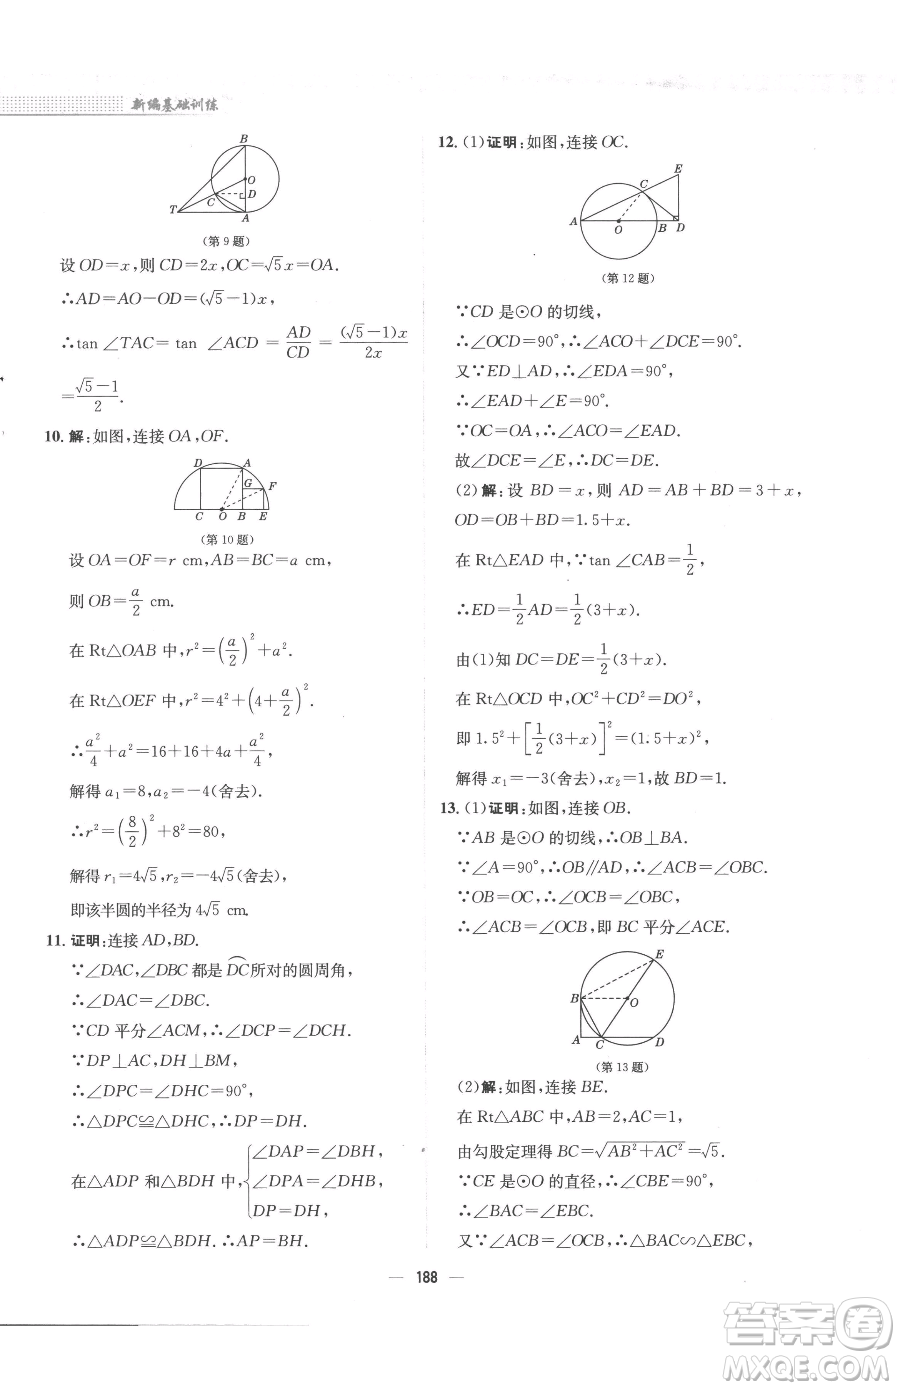 新编基础训练
B
O
C
D
T
A
(第9题)
设 OD=x,则 CD=2x,OC=√5x=OA.
∴AD=AO−OD=(√5−1)x,
∴tan ∠TAC=tan ∠ACD=AD/CD=(√5−1)x/2x
=(√5−1)/2.
10. 解:如图,连接 OA,OF.
D A
G F
C O B E
(第10题)
设 OA=OF=r cm,AB=BC=a cm,
则 OB=a/2 cm.
在 Rt△OAB 中,r²=(a/2)²+a².
在 Rt△OEF 中,r²=4²+(4+a/2)².
∴a²/4+a²=16+16+4a+a²/4.
解得 a₁=8,a₂=−4(舍去).
∴r²=(8/2)²+8²=80,
解得 r₁=4√5,r₂=−4√5(舍去),
即该半圆的半径为 4√5 cm.
11. 证明:连接 AD,BD.
∵∠DAC,∠DBC 都是DC⌒所对的圆周角,
∴∠DAC=∠DBC.
∵CD 平分∠ACM,∴∠DCP=∠DCH.
∵DP⊥AC,DH⊥BM,
∴∠DPC=∠DHC=90°,
∴△DPC≌△DHC,∴DP=DH.
在△ADP 和△BDH 中,{∠DAP=∠DBH,
∠DPA=∠DHB,
DP=DH,
∴△ADP≌△BDH.∴AP=BH.
12. (1)证明:如图,连接 OC.
E
C
A O B D
(第12题)
∵CD 是⊙O 的切线,
∴∠OCD=90°,∴∠ACO+∠DCE=90°.
又∵ED⊥AD,∴∠EDA=90°,
∴∠EAD+∠E=90°.
∵OC=OA,∴∠ACO=∠EAD.
故∠DCE=∠E,∴DC=DE.
(2)解:设 BD=x,则 AD=AB+BD=3+x,
OD=OB+BD=1.5+x.
在 Rt△EAD 中,∵tan ∠CAB=1/2,
∴ED=1/2AD=1/2(3+x).
由(1)知 DC=DE=1/2(3+x).
在 Rt△OCD 中,OC²+CD²=DO²,
即 1.5²+[1/2(3+x)]²=(1.5+x)²,
解得 x₁=−3(舍去),x₂=1,故 BD=1.
13. (1)证明:如图,连接 OB.
∵AB 是⊙O 的切线,∴OB⊥BA.
∵∠A=90°,∴OB∥AD,∴∠ACB=∠OBC.
∵OB=OC,∴∠OCB=∠OBC,
∴∠ACB=∠OCB,即 BC 平分∠ACE.
E
B O
A C D
(第13题)
(2)解:如图,连接 BE.
在 Rt△ABC 中,AB=2,AC=1,
由勾股定理得 BC=√(AB²+AC²)=√5.
∵CE 是⊙O 的直径,
∴∠BCE+∠BEC=90°,∠EBC=90°.